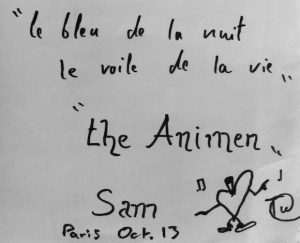 "le bleu de la nuit
le voile de la vie"
"the Animen"
Sam
Paris Oct. 13